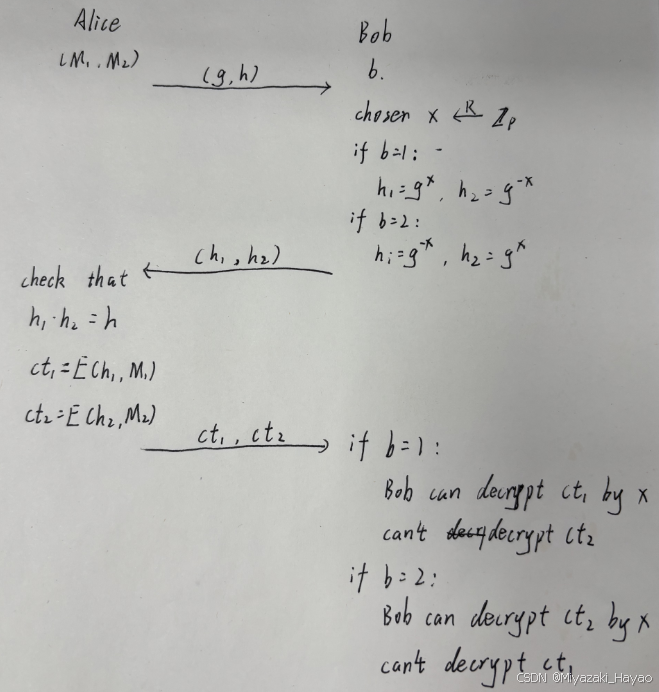 Alice
(M₁, M₂)
(g, h)
Bob
b.
chosen x ←R ℤp
if b=1: -
h₁=g^x, h₂=g^-x
if b=2:
h₁=g^-x, h₂=g^x
(h₁, h₂)
check that
h₁·h₂=h
ct₁=E(h₁, M₁)
ct₂=E(h₂, M₂)
ct₁, ct₂
if b=1:
Bob can decrypt ct₁ by x
can't decrypt ct₂
if b=2:
Bob can decrypt ct₂ by x
can't decrypt ct₁
CSDN @Miyazaki_Hayao